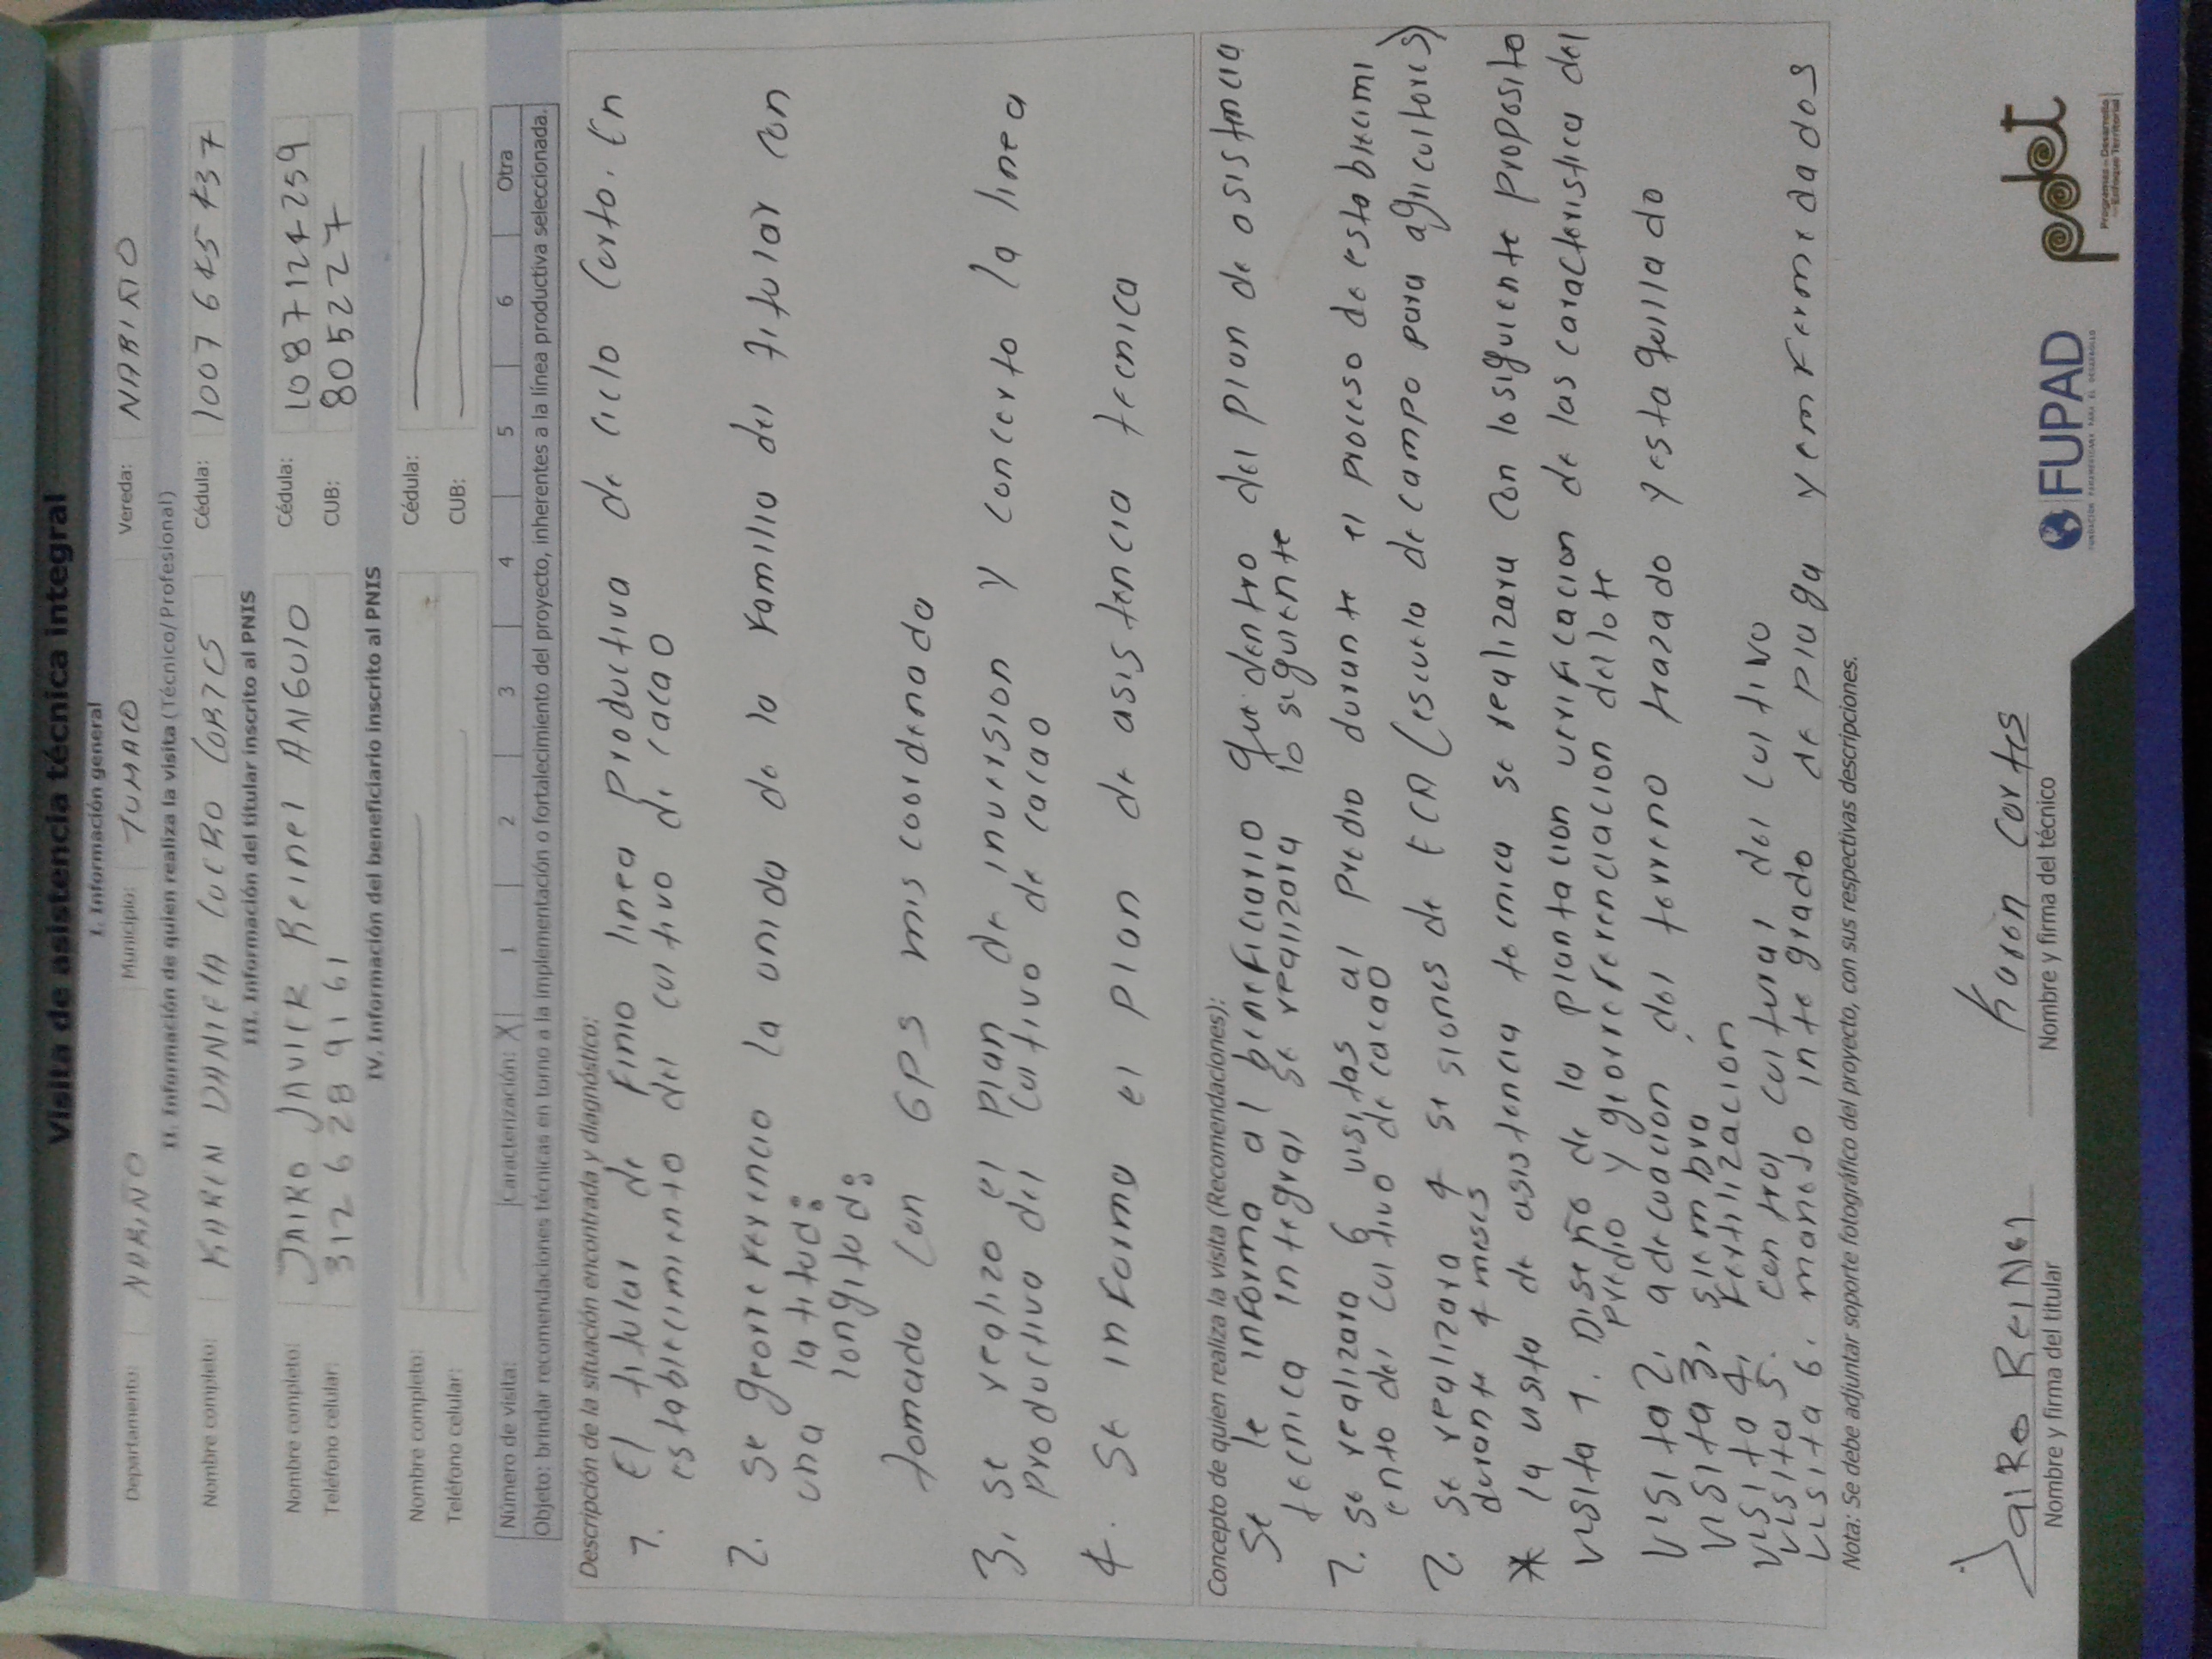 Visita de asistencia técnica integral
I. Información general
Departamento: NARIÑO Municipio: TUMACO Vereda: NARIÑO
II. Información de quien realiza la visita (Técnico/Profesional)
Nombre completo: KAREN DANIELA CUERO CORTES Cédula: 1007645437
III. Información del titular inscrito al PNIS
Nombre completo: JAIRO JAVIER REINEL ANGULO Cédula: 1087124259
Teléfono celular: 3126289161 CUB: 805227
IV. Información del beneficiario inscrito al PNIS
Nombre completo: Cédula:
Teléfono celular: CUB:
Número de visita: Caracterización: X 1 2 3 4 5 6 Otra
Objeto: brindar recomendaciones técnicas en torno a la implementación o fortalecimiento del proyecto, inherentes a la línea productiva seleccionada.
Descripción de la situación encontrada y diagnóstico:
1. El titular de finio linea productiva de ciclo corto. En
establecimiento del cultivo de cacao
2. Se georreferencio la unida de la familia del titular con
una latitud:
longitud:
tomada con GPS mis coordenada
3, se realizo el plan de inversion y concerto la linea
productiva del cultivo de cacao
4. Se informa el plan de asistencia tecnica
Concepto de quien realiza la visita (Recomendaciones):
Se le informa al beneficiario que dentro del plan de asistencia
tecnica integral se realizara lo siguiente
1. se realizara 6 visitas al predio durante el proceso de establecimi
ento del cultivo de cacao
2. se realizara 4 sesiones de ECA (escuela de campo para agricultores)
durante 4 meses
* la visita de asistencia tecnica se realizara con losiguiente proposito
visita 1. Diseño de la plantacion verificacion de las caracteristica del
predio y georreferenciacion del lote
Visita 2, adecuacion del terreno trazado y estaquillado
Visita 3, siembra
Visita 4, Fertilizacion
Visita 5. control cultural del cultivo
Visita 6, manejo integrado de plaga y enfermedados
Nota: Se debe adjuntar soporte fotográfico del proyecto, con sus respectivas descripciones.
Jairo ReiNel Karen Cortes
Nombre y firma del titular Nombre y firma del técnico
FUPAD
FUNDACIÓN PANAMERICANA PARA EL DESARROLLO
pdet
Programas de Desarrollo
con Enfoque Territorial